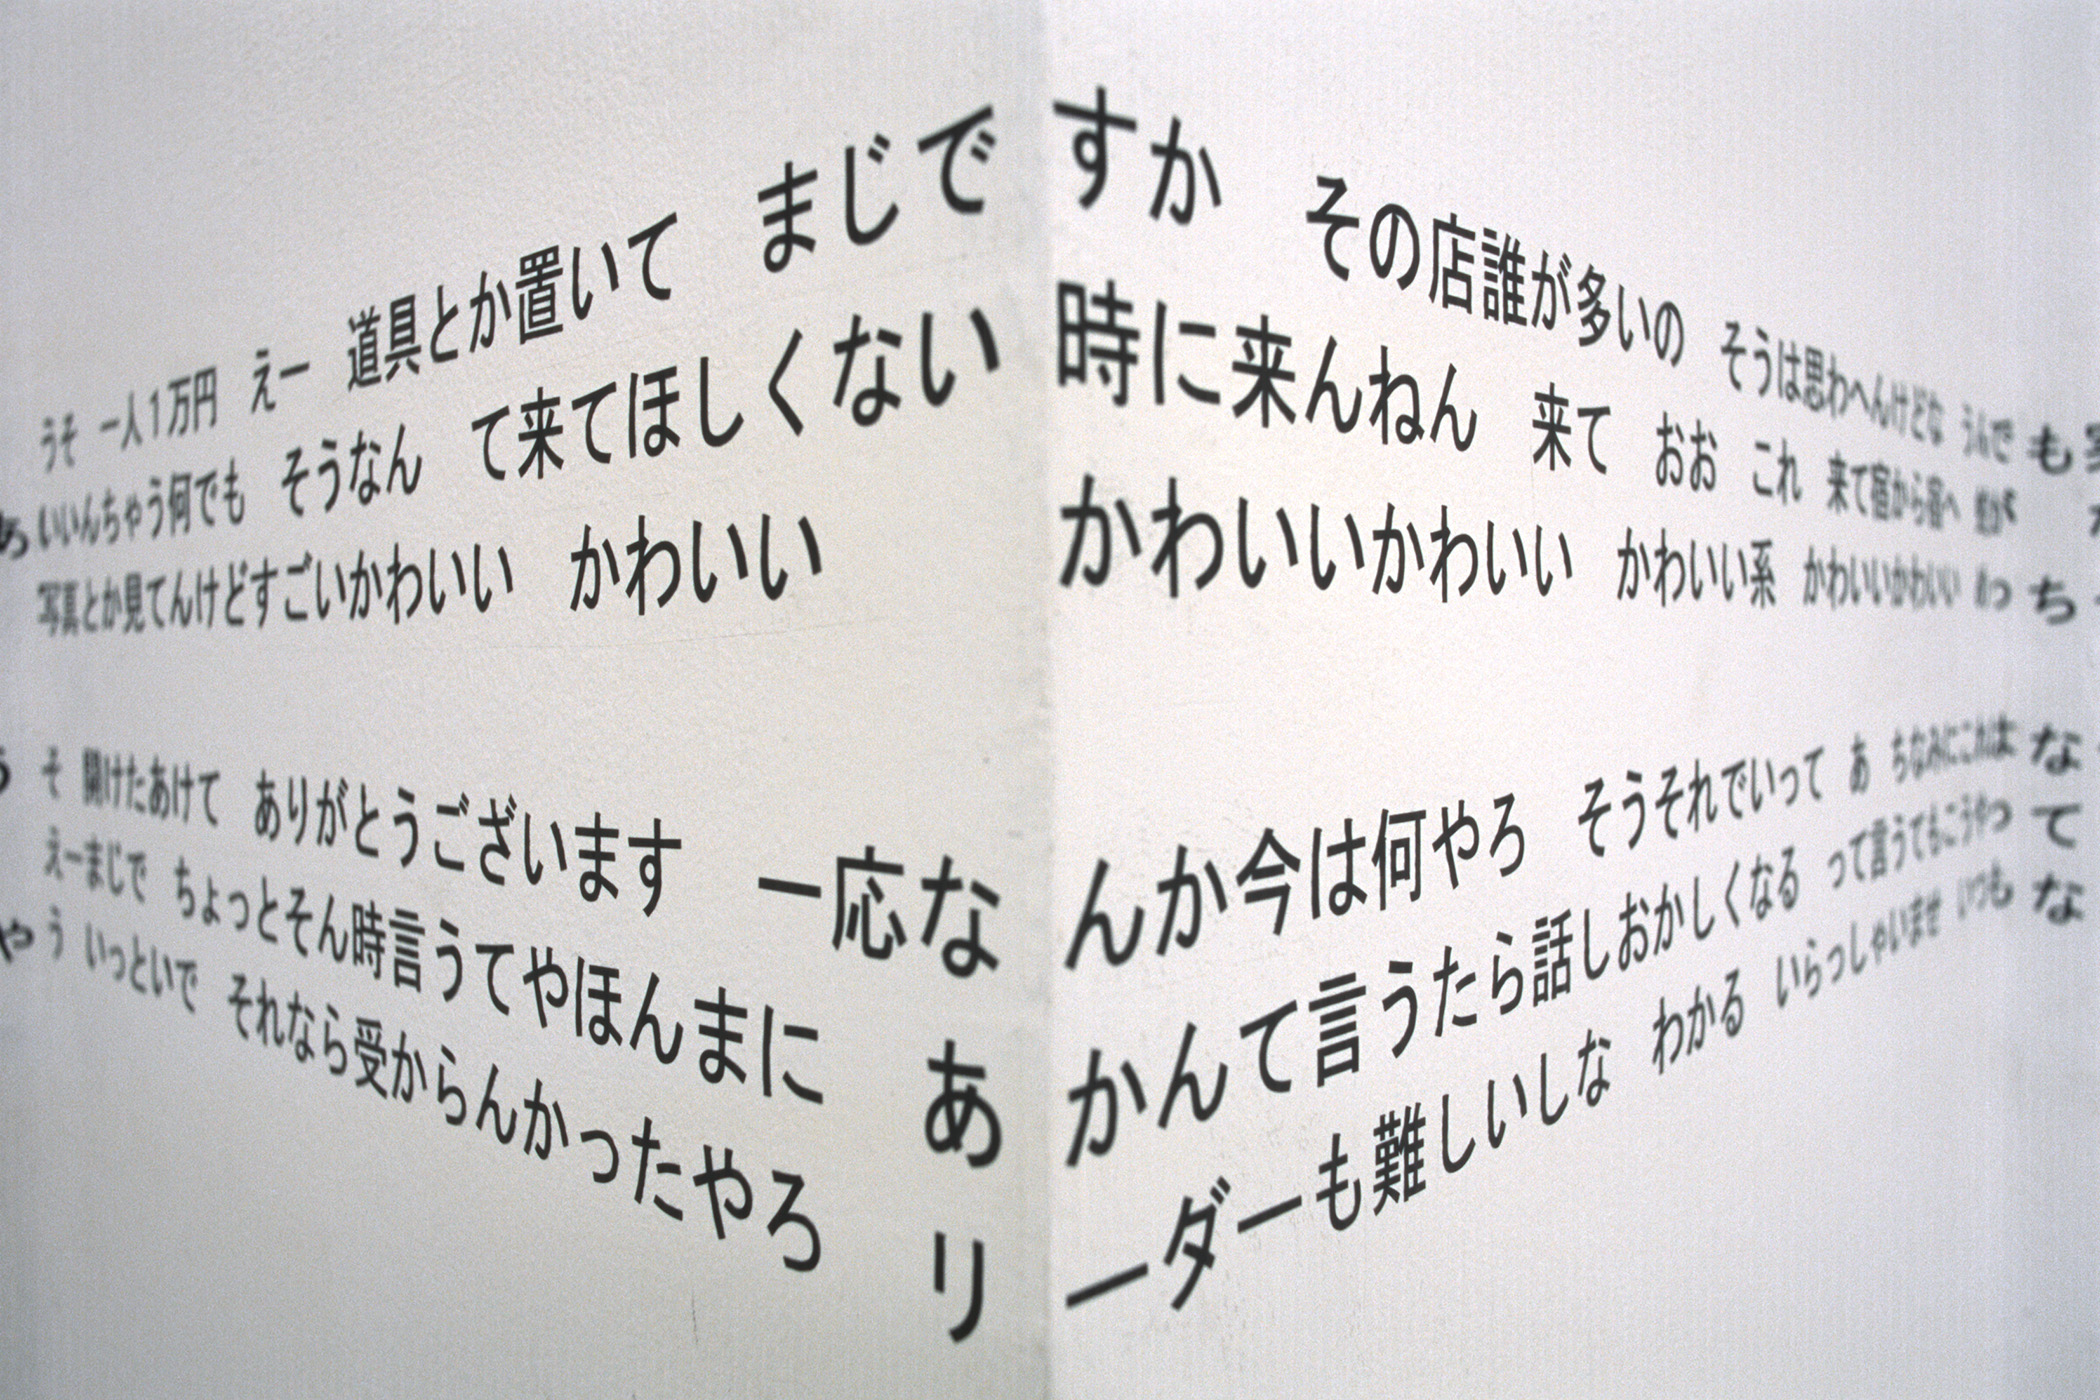 うそ 一人1万円 えー 道具とか置いて まじですか その店誰が多いの そうは思わへんけどな うんで も
あ いいんちゃう何でも そうなん て来てほしくない時に来んねん 来て おお これ 来て宿から宿へ
写真とか見てんけどすごいかわいい かわいい かわいいかわいい かわいい系 かわいいかわいい めっち
うそ 開けたあけて ありがとうございます 一応なんか今は何やろ そうそれでいって あ ちなみにこれはな
えーまじで ちょっとそん時言うてやほんまに あかんて言うたら話しおかしくなる って言うてもこうやって
やう いっといで それなら受からんかったやろ リーダーも難しいしな わかる いらっしゃいませ いつもな